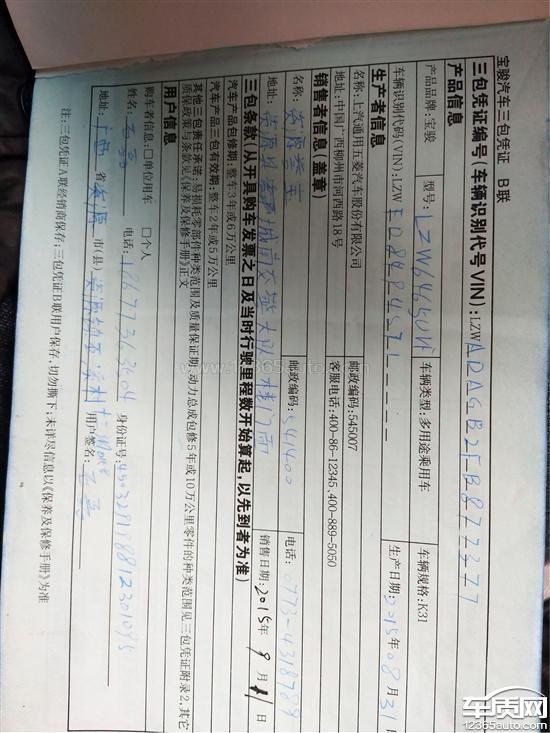 宝骏汽车三包凭证 B联
三包凭证编号(车辆识别代号VIN):LZWADAGB2FB877377
产品信息
产品品牌:宝骏 型号:LZW6465 车辆类型:多用途乘用车 车辆规格:K31
车辆识别代码(VIN):LZW 生产日期:2015年08月31日
生产者信息
名称:上汽通用五菱汽车股份有限公司 邮政编码:545007
地址:中国广西柳州市河西路18号 客服电话:400-86-12345,400-889-5050
销售者信息(盖章)
名称: 邮政编码:541400 电话:0773-4318789
地址: 销售日期:2015年9月11日
三包条款(从开具购车发票之日及当时行驶里程数开始算起,以先到者为准)
汽车产品包修期:整车3年或6万公里
汽车产品三包有效期:整车2年或5万公里
其他三包责任承诺:易损耗零部件种类范围及质量保证期、动力总成包修5年或10万公里零件的种类范围见三包凭证附录2,其它
质保政策与条款见《保养及保修手册》正文
用户信息
购车者信息:□单位用车 □个人
姓名: 电话:18677363604 身份证号:
地址:广西省资源市(县) 用户签名:
注:三包凭证A联经销商保存;三包凭证B联用户保存,切勿撕下;未详尽信息以《保养及保修手册》为准
www.12365auto.com
车质网
12365auto.com